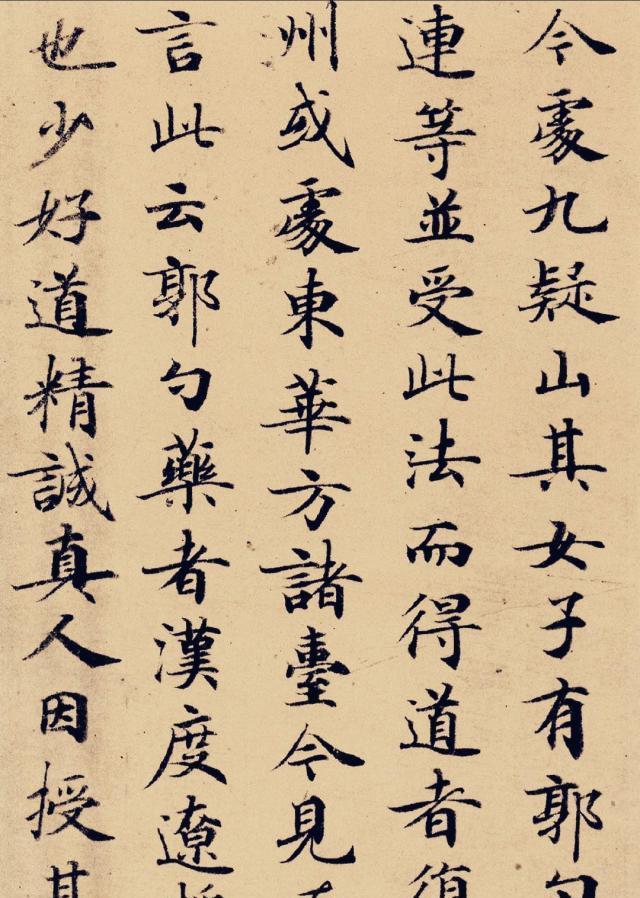 今處九疑山其女子有郭勺
連等並受此法而得道者復
州或處東華方諸臺今見
言此云郭勺藥者漢度遼
也少好道精誠真人因授其